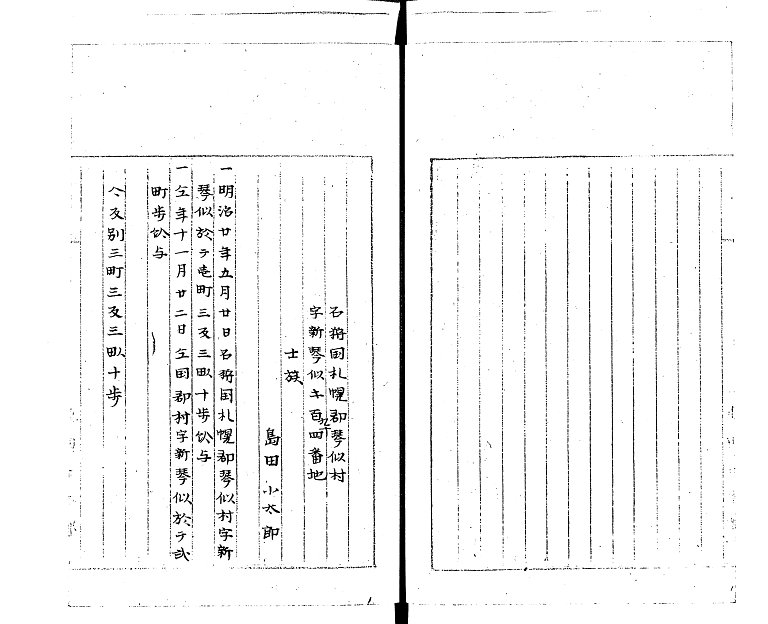 石狩国札幌郡琴似村
字新琴似七百九十四番地
士族
島田小太郎
一明治廿年五月廿日石狩国札幌郡琴似村字新
琴似於テ壱町三反三畝十歩給与
一仝年十一月廿二日仝国郡村字新琴似於テ弐
町歩給与
〆反別三町三反三畝十歩